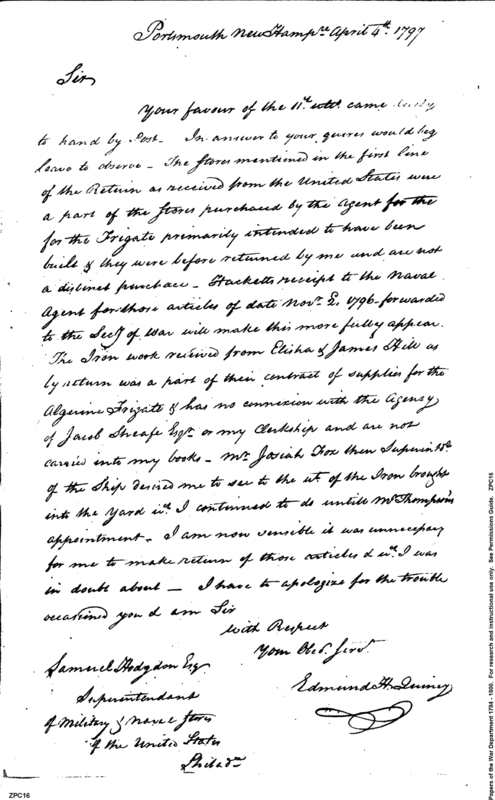 Portsmouth New Hampre April 4th. 1797
Sir
Your favour of the 11th. ulto. came
to hand by Post - In answer to your queres would beg
leave to observe - The Stores mentioned in the first line
of the Return as received from the United States were
a part of the Stores purchased by the Agent for the
for the Frigate primarily intended to have been
built & they were before returned by me and are not
a distinct purchace - Hacketts receipt to the Naval
Agent for those articles of date Novr. 2. 1796 forwarded
to the Secy of War will make this more fully appear.
The Iron work received from Elisha & James Hill as
by return was a part of their contract of supplies for the
Algerine Frigate & has no connexion with the Agency
of Jacob Sheafe Esqr. or my Clerkship and are not
carried into my books - Mr. Josiah Fox then Superintdt.
of the Ship desired me to see to the wt. of the Iron brought
into the Yard wch. I continued to do untill Mr. Thompson's
appointment - I am now sensible it was unnecessary
for me to make return of those articles & wch. I was
in doubt about - I have to apologize for the trouble
occasioned you & am Sir
with Respect
Your Obedt. Servt.
Edmund H. Quincy
Samuel Hodgdon Esq
Superintendant
of Military & Naval Stores
of the United States
Philada
ZPC16
Papers of the War Department 1784 - 1800. For research and instructional use only. See Permissions Guide. ZPC16